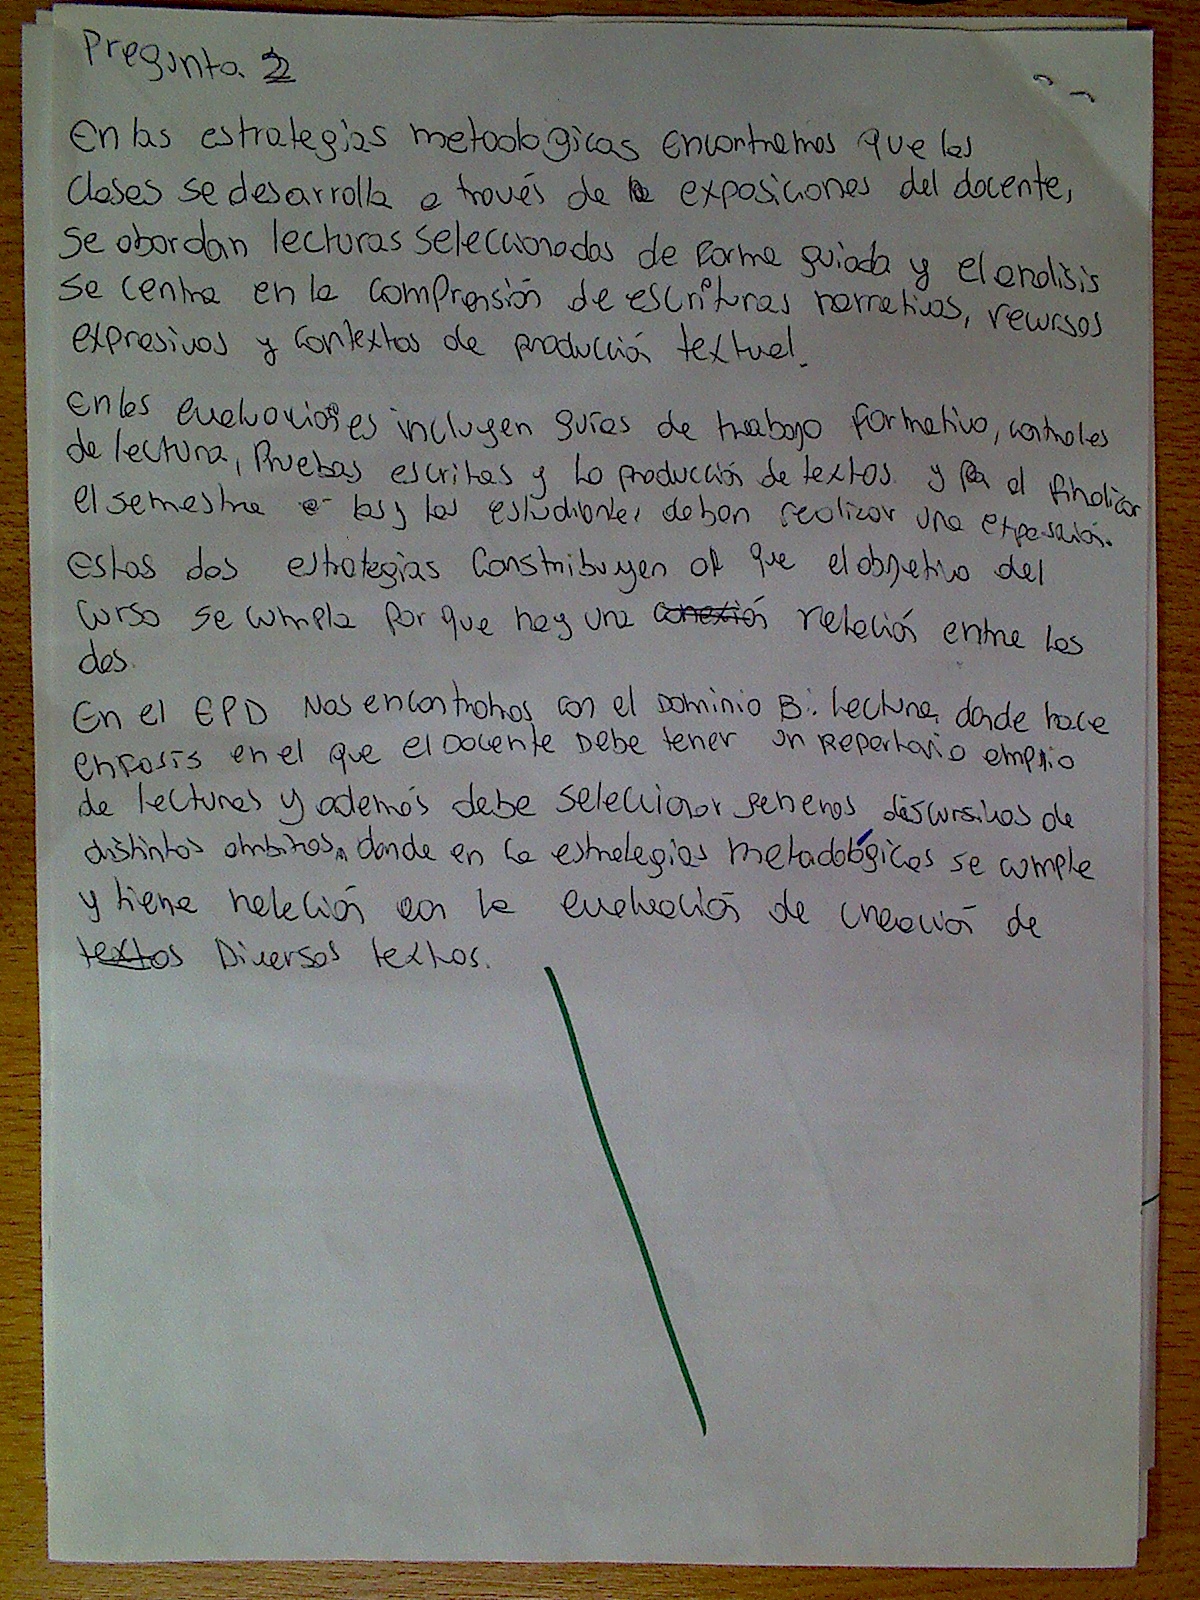 Pregunta 2
En las estrategias metoologicas encontramos que las
clases se desarrolla a través de la exposiciones del docente,
se abordan lecturas seleccionadas de forma guiada y el analisis
se centra en la comprensión de escrituras narrativas, recursos
expresivos y contextos de producción textual.
En las evaluaciones incluyen guías de trabajo formativo, controles
de lectura, Pruebas escritas y La producción de textos y al finalizar
el semestre las y los estudiantes deban realizar una exposición.
estas dos estrategias Constribuyen a que el objetivo del
curso se cumpla por que hay una conexión relación entre las
dos.
En el EPD Nos encontramos con el Dominio B: Lectura, donde hace
enfasis en el que el Docente Debe tener un Repertorio amplio
de lecturas y además debe seleccionar generos discursivos de
distintos ambitos, donde en la estrategias metadológicas se cumple
y tiene relación con la evaluación de creación de
textos Diversos textos.